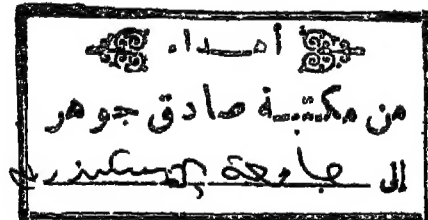 أهداء
من مكتبة صادق جوهر
الى جامعة إسكندرية